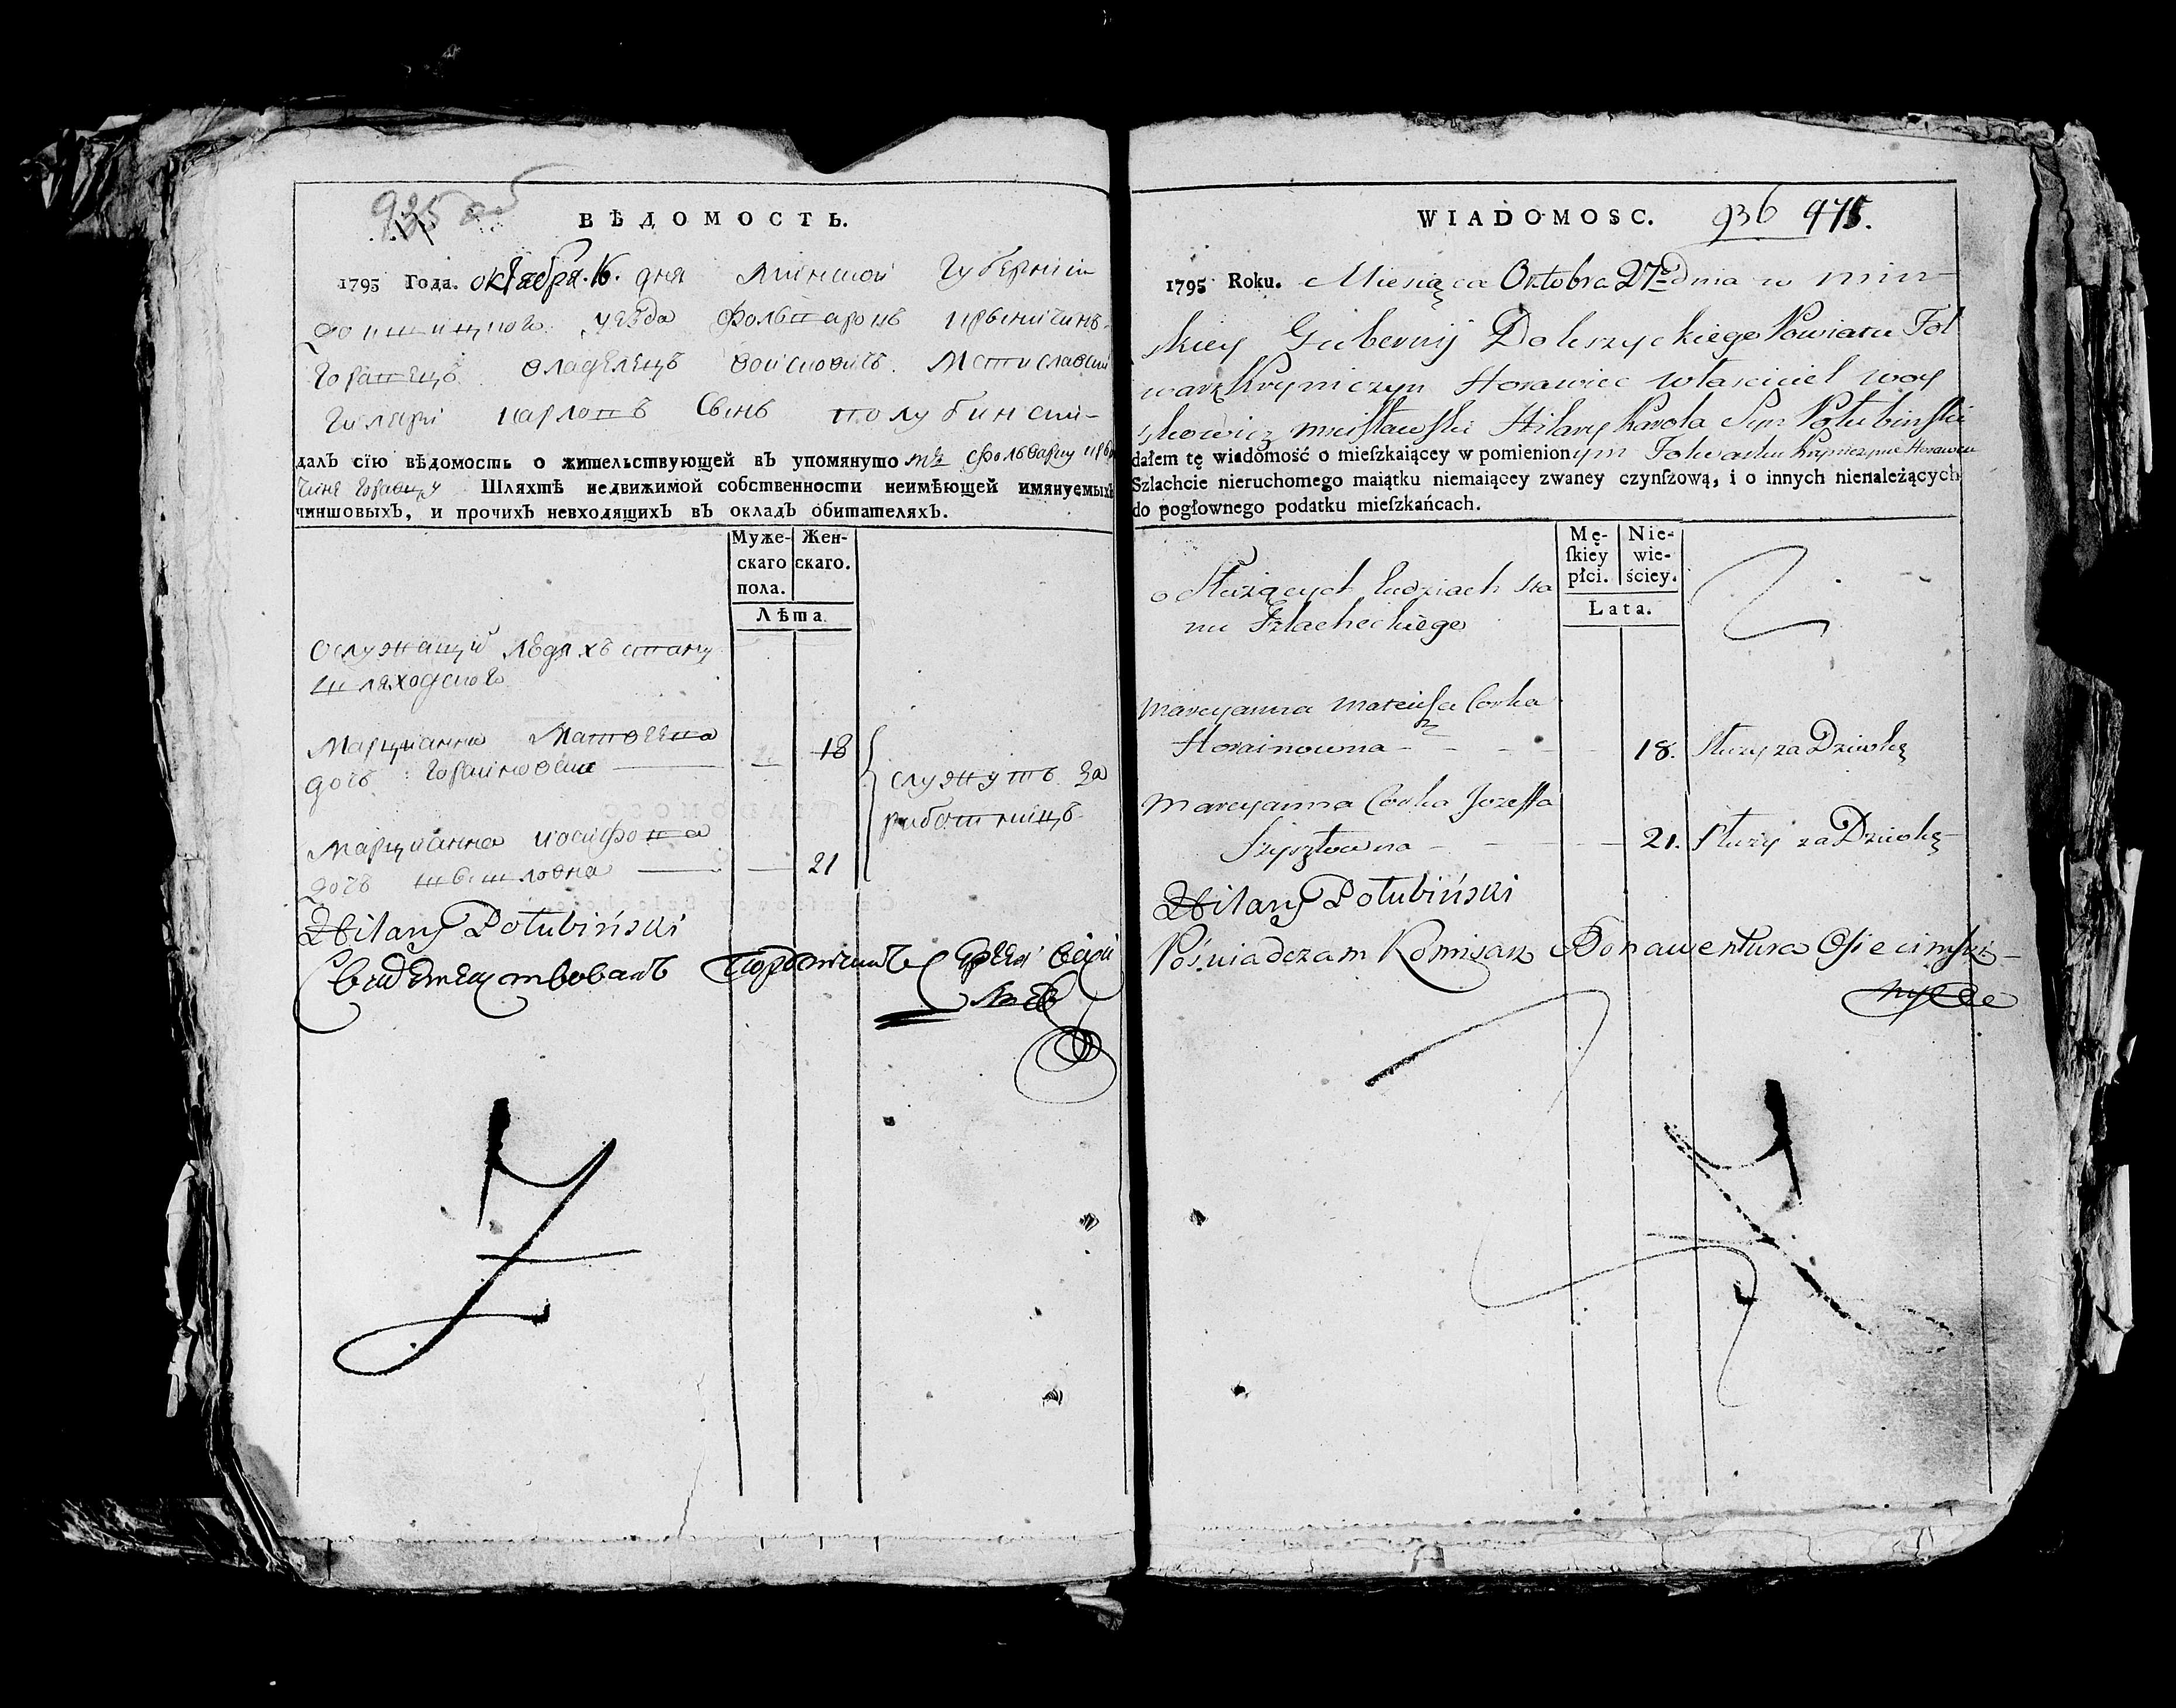 925 об
ВѢДОМОСТЬ.
1795 Года. октября. 16. дня Минской Губернии
уезда Фольварокъ
владелецъ Мстиславски
Гиляри Карловъ Сынъ Полубински
далъ сїю вѣдомость о жительствующей въ упомянуто мъ фольварку
Шляхтѣ недвижимой собственности неимѣющей имянуемыхъ
чиншовыхъ, и прочихъ невходящихъ въ окладъ обитателяхъ.
Муже-
скаго
пола.
Жен-
скаго.
Лѣта.
О служащи людяхъ стану
шляходского
Марцыанна Матвеева
дочь Гораиновна — 18
служутъ за
работницъ
Марцыанна иосифова
дочь — — 21
Hilary Połubiński
Свидетельствовалъ
WIADOMOSC. 936 975.
1795 Roku. Miesiąca Oktobra 27 Dnia w min-
skiey Gubernij Dokszyckiego Powiatu Fol
wark Kryniczyn Horawiec własciciel woy
skowicz mscisławski Hilary Karola Syn Połubinski
dałem tę wiadomość o mieſzkaiącey w pomienionym Folwarku Kryniczynie Horawcu
Szlachcie nieruchomego maiątku niemaiącey zwaney czynſzową, i o innych nienależących
do pogłownego podatku mieſzkańcach.
Mę-
ſkiey
płci.
Nie-
wie-
ściey.
Lata.
o Służących ludziach sta
nu Szlacheckiego
Marcyanna Mateusza Corka
Horainowna - - - - 18. służy za Dziewkę
Marcyanna Corka Jozeffa
Szyszłowna - - - 21. służy za Dziewkę
Hilary Połubiński
Poświadczam Komisarz Bonawentura Osiecimski